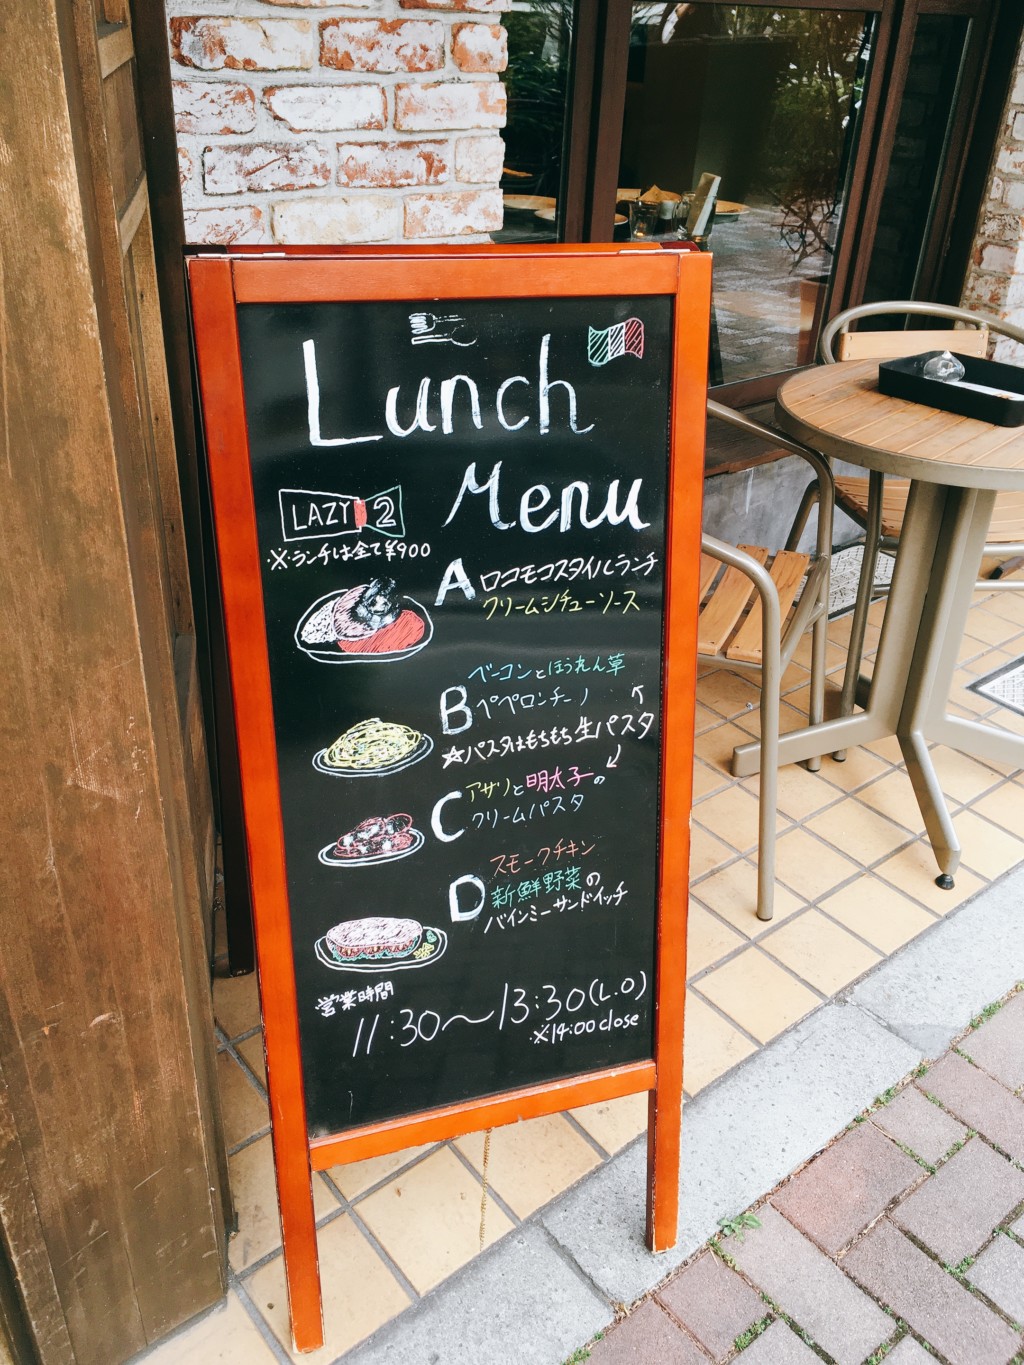 Lunch
Menu
LAZY 2
※ランチは全て¥900
A ロコモコスタイルランチ
クリームシチューソース
B ベーコンとほうれん草
ペペロンチーノ
☆パスタはもちもち生パスタ
C アサリと明太子の
クリームパスタ
D スモークチキン
新鮮野菜の
バインミーサンドイッチ
営業時間
11:30〜13:30(L.O)
※14:00 close